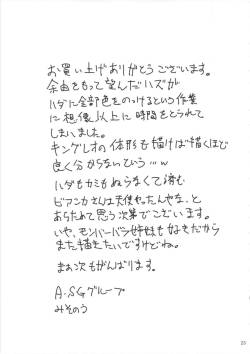 お買い上げありがとうございます。
余裕をもって望んだハズが
ハダに全部色をのっけるという作業
に想像以上に時間をとられて
しまいました。
キングレオの体形も描けば描くほど
良く分からないという…w
ハダもカミもぬらなくて済む
ビアンカさんは天使やったんやな、と
あらためて思う次第でございます。
いや、モンバーバラ姉妹も好きだから
また描きたいですけどね。
まぁ次もがんばります。
A・SGグループ
みそのう
25